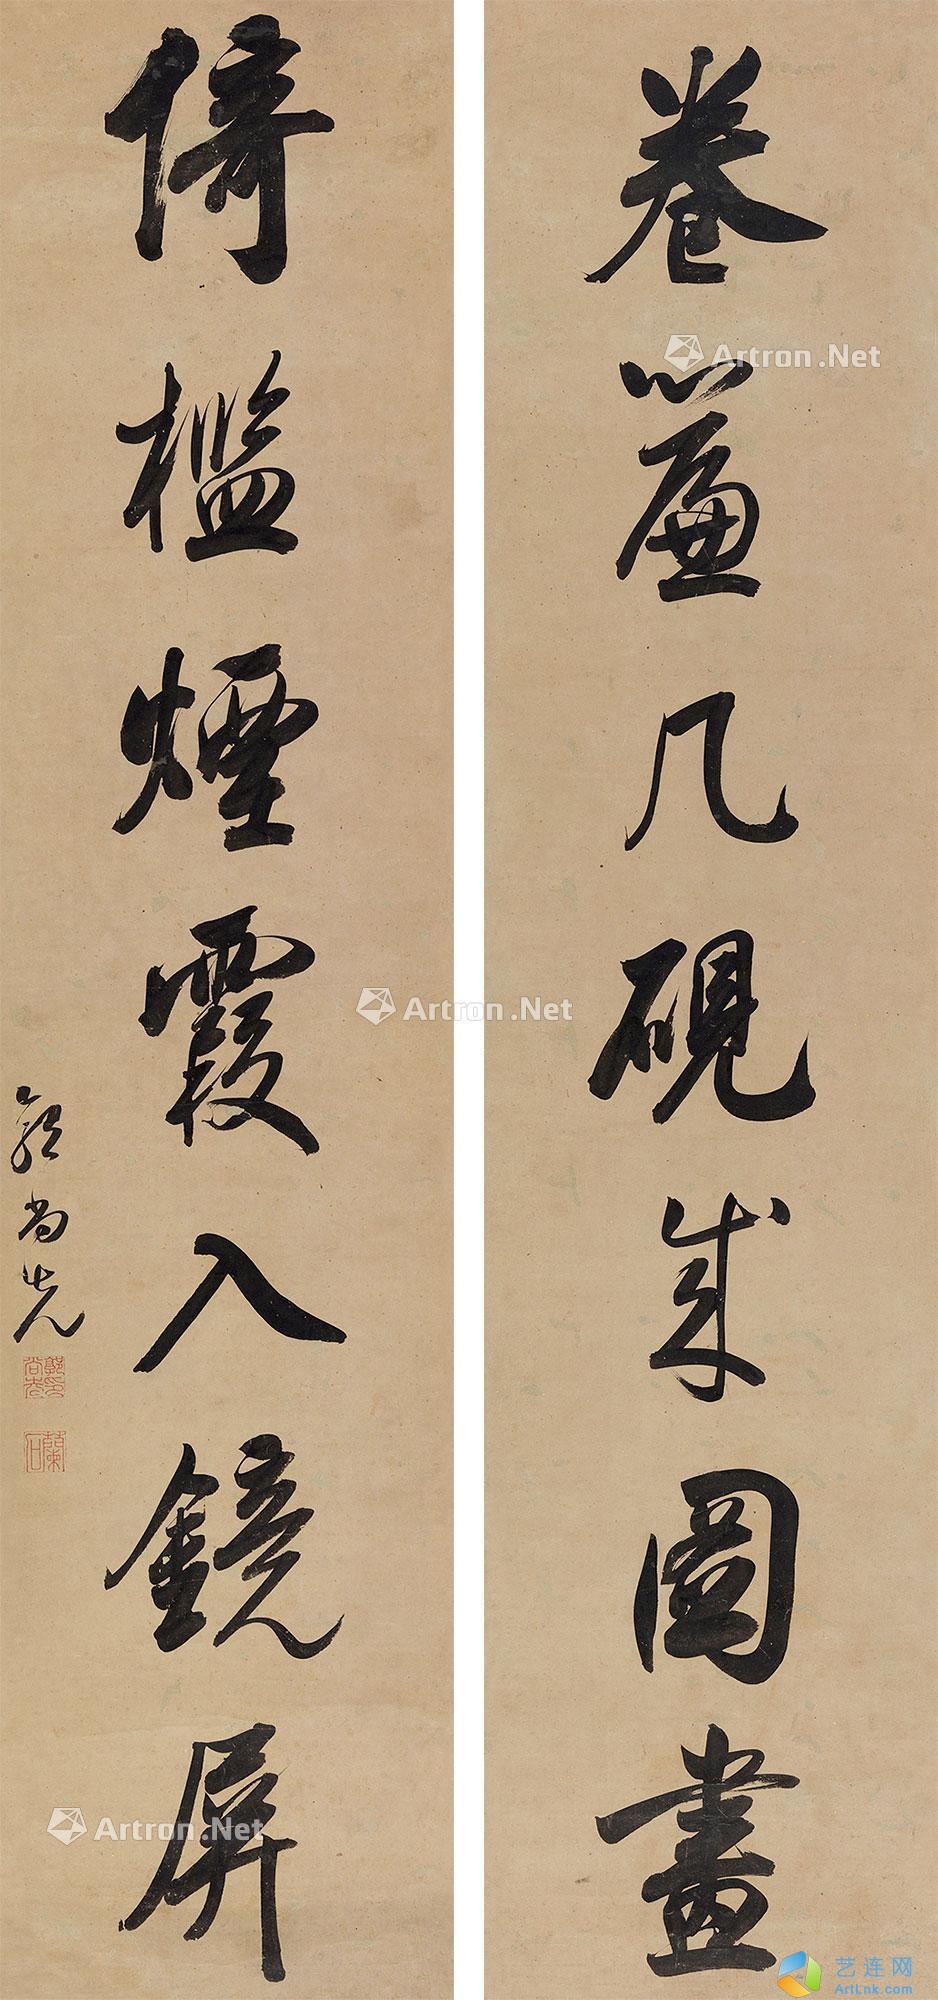 卷簾几硯成圖畫
倚檻煙霞入鏡屏
郭尚先
郭尚先印
蘭石
Artron.Net
Artron.Net
Artron.Net
艺连网
ArtLnk.com